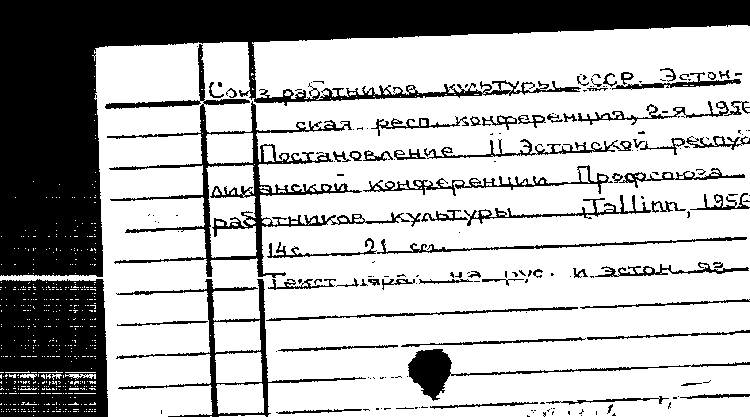 Союз работников культуры СССР. Эстон-
ская респ. конференция, 2-я. 1956
Постановление II Эстонской респуб
ликанской конференции Профсоюза
работников культуры Tallinn, 1956
14с. 21 см.
Текст парал. на рус. и эстон. яз